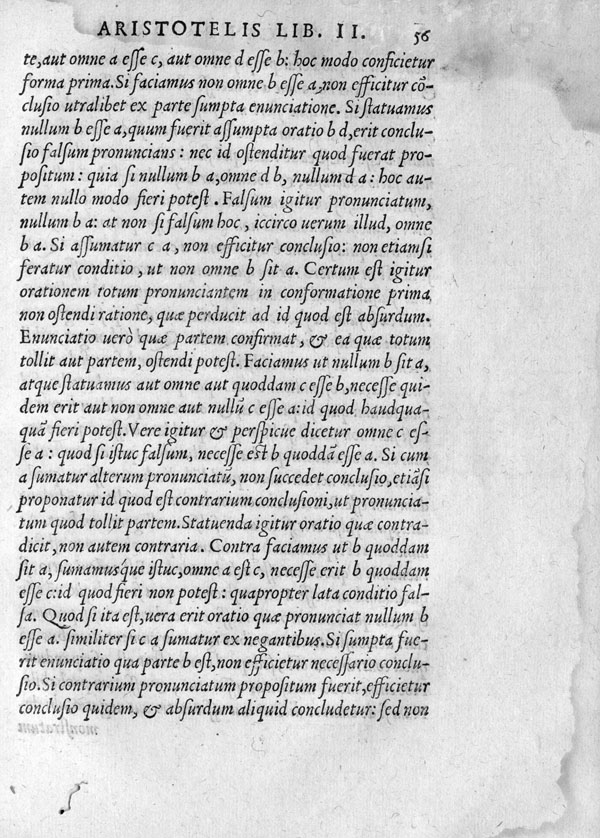 ARISTOTELIS LIB. II. 56
te, aut omne a esse c, aut omne d esse b: hoc modo conficietur
forma prima. Si faciamus non omne b esse a, non efficitur cō-
clusio utralibet ex parte sumpta enunciatione. Si statuamus
nullum b esse a, quum fuerit assumpta oratio b d, erit conclu-
sio falsum pronuncians: nec id ostenditur quod fuerat pro-
positum: quia si nullum b a, omne d b, nullum d a: hoc au-
tem nullo modo fieri potest. Falsum igitur pronunciatum,
nullum b a: at non si falsum hoc, iccirco uerum illud, omne
b a. Si assumatur c a, non efficitur conclusio: non etiamsi
feratur conditio, ut non omne b sit a. Certum est igitur
orationem totum pronunciantem in conformatione prima
non ostendi ratione, quæ perducit ad id quod est absurdum.
Enunciatio uerò quæ partem confirmat, & ea quæ totum
tollit aut partem, ostendi potest. Faciamus ut nullum b sit a,
atque statuamus aut omne aut quoddam c esse b, necesse qui-
dem erit aut non omne aut nullū c esse a: id quod haudqua-
quā fieri potest. Vere igitur & perspicue dicetur omne c es-
se a: quod si istuc falsum, necesse est b quoddā esse a. Si cum
a sumatur alterum pronunciatū, non succedet conclusio, etiāsi
proponatur id quod est contrarium conclusioni, ut pronuncia-
tum quod tollit partem. Statuenda igitur oratio quæ contra-
dicit, non autem contraria. Contra faciamus ut b quoddam
sit a, sumamusque istuc, omne a est c, necesse erit b quoddam
esse c: id quod fieri non potest: quapropter lata conditio fal-
sa. Quod si ita est, uera erit oratio quæ pronunciat nullum b
esse a. similiter si c a sumatur ex negantibus. Si sumpta fue-
rit enunciatio qua parte b est, non efficietur necessario conclu-
sio. Si contrarium pronunciatum propositum fuerit, efficietur
conclusio quidem, & absurdum aliquid concludetur: sed non
monstratum